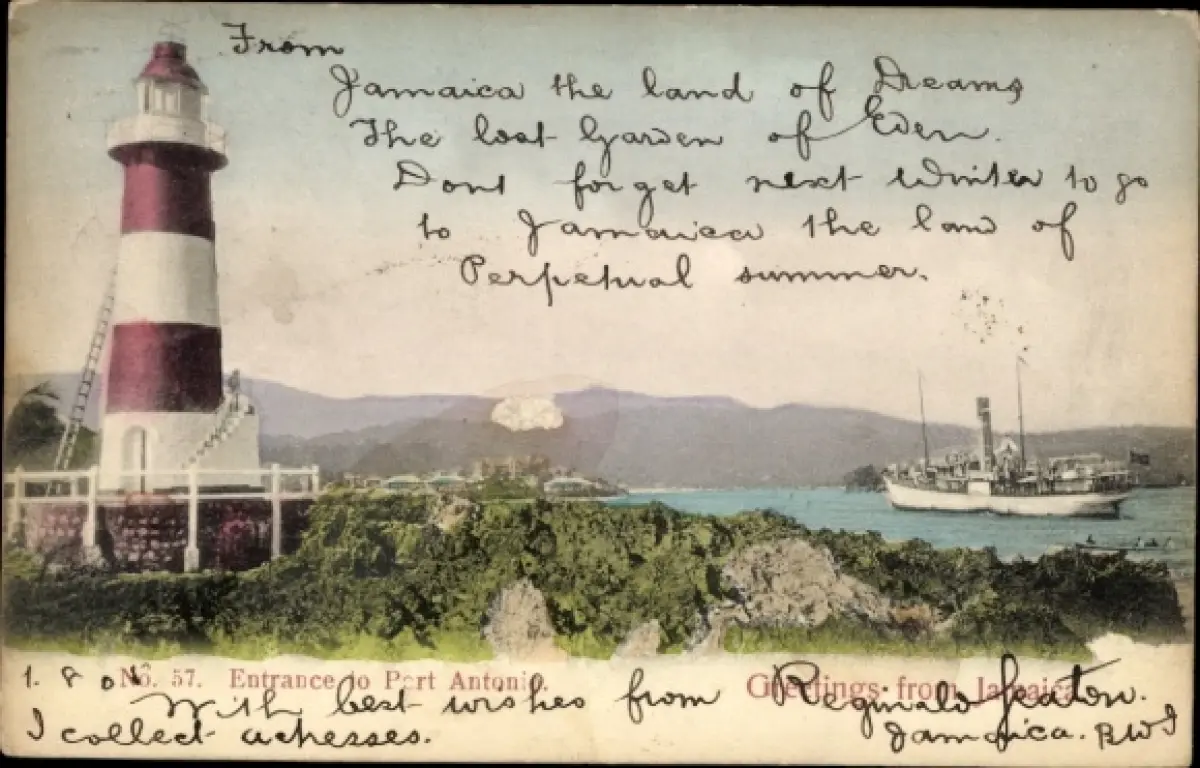 From
Jamaica the land of Dreams
The lost Garden of Eden.
Dont forget next winter to go
to Jamaica the land of
Perpetual summer.
No. 57. Entrance to Port Antonio. Greetings from Jamaica
With best wishes from Reginald
I collect
Jamaica. BWI